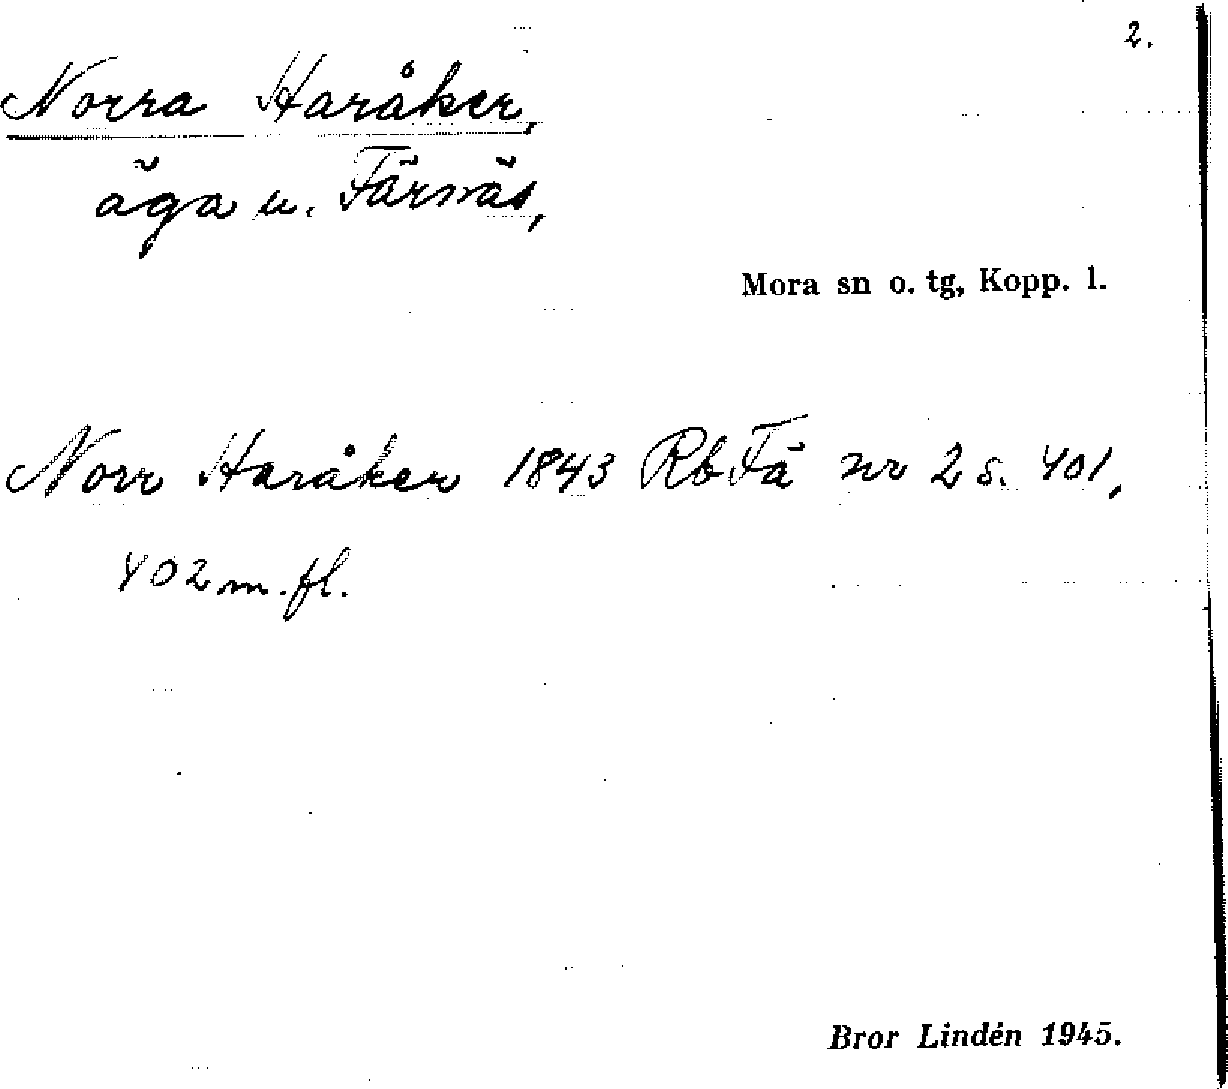 2.
Norra Haråker,
äga u. Färnäs,
Mora sn o. tg, Kopp. l.
Norr Haråker 1843 Rb Fä nr 2 s. 401,
402 m. fl.
Bror Lindén 1945.